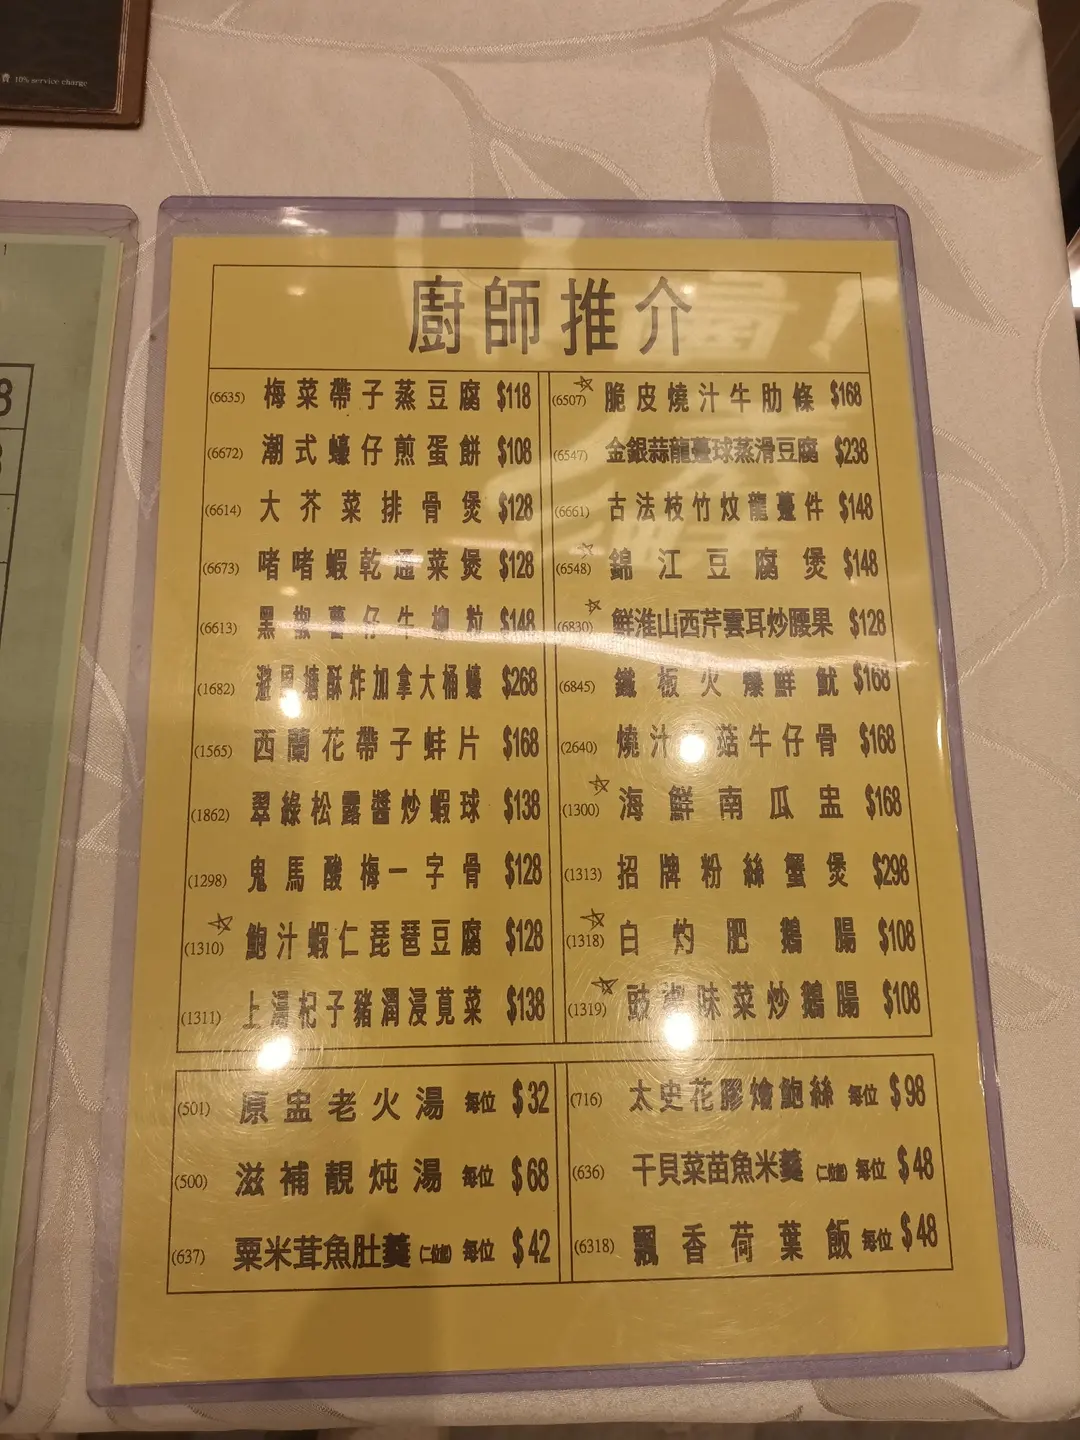 費 10% service charge
1
8
廚師推介
(6635) 梅菜帶子蒸豆腐 $118
(6672) 潮式蠔仔煎蛋餅 $108
(6614) 大芥菜排骨煲 $128
(6673) 啫啫蝦乾通菜煲 $128
(6613) 黑椒薯仔牛柳粒 $148
(1682) 避風塘酥炸加拿大桶蠔 $268
(1565) 西蘭花帶子蚌片 $168
(1862) 翠綠松露醬炒蝦球 $138
(1298) 鬼馬酸梅一字骨 $128
☆
(1310) 鮑汁蝦仁琵琶豆腐 $128
(1311) 上湯杞子豬潤浸莧菜 $138
☆
(6507) 脆皮燒汁牛肋條 $168
(6547) 金銀蒜龍躉球蒸滑豆腐 $238
(6661) 古法枝竹炆龍躉件 $148
☆
(6548) 錦江豆腐煲 $148
☆
(6830) 鮮淮山西芹雲耳炒腰果 $128
(6845) 鐵板火爆鮮魷 $168
(2640) 燒汁菇牛仔骨 $168
☆
(1300) 海鮮南瓜盅 $168
(1313) 招牌粉絲蟹煲 $298
☆
(1318) 白灼肥鵝腸 $108
☆
(1319) 豉椒味菜炒鵝腸 $108
(501) 原盅老火湯 每位 $32
(500) 滋補靚炖湯 每位 $68
(637) 粟米茸魚肚羹 (二位起) 每位 $42
(716) 太史花膠燴鮑絲 每位 $98
(636) 干貝菜苗魚米羹 (二位起) 每位 $48
(6318) 飄香荷葉飯 每位 $48